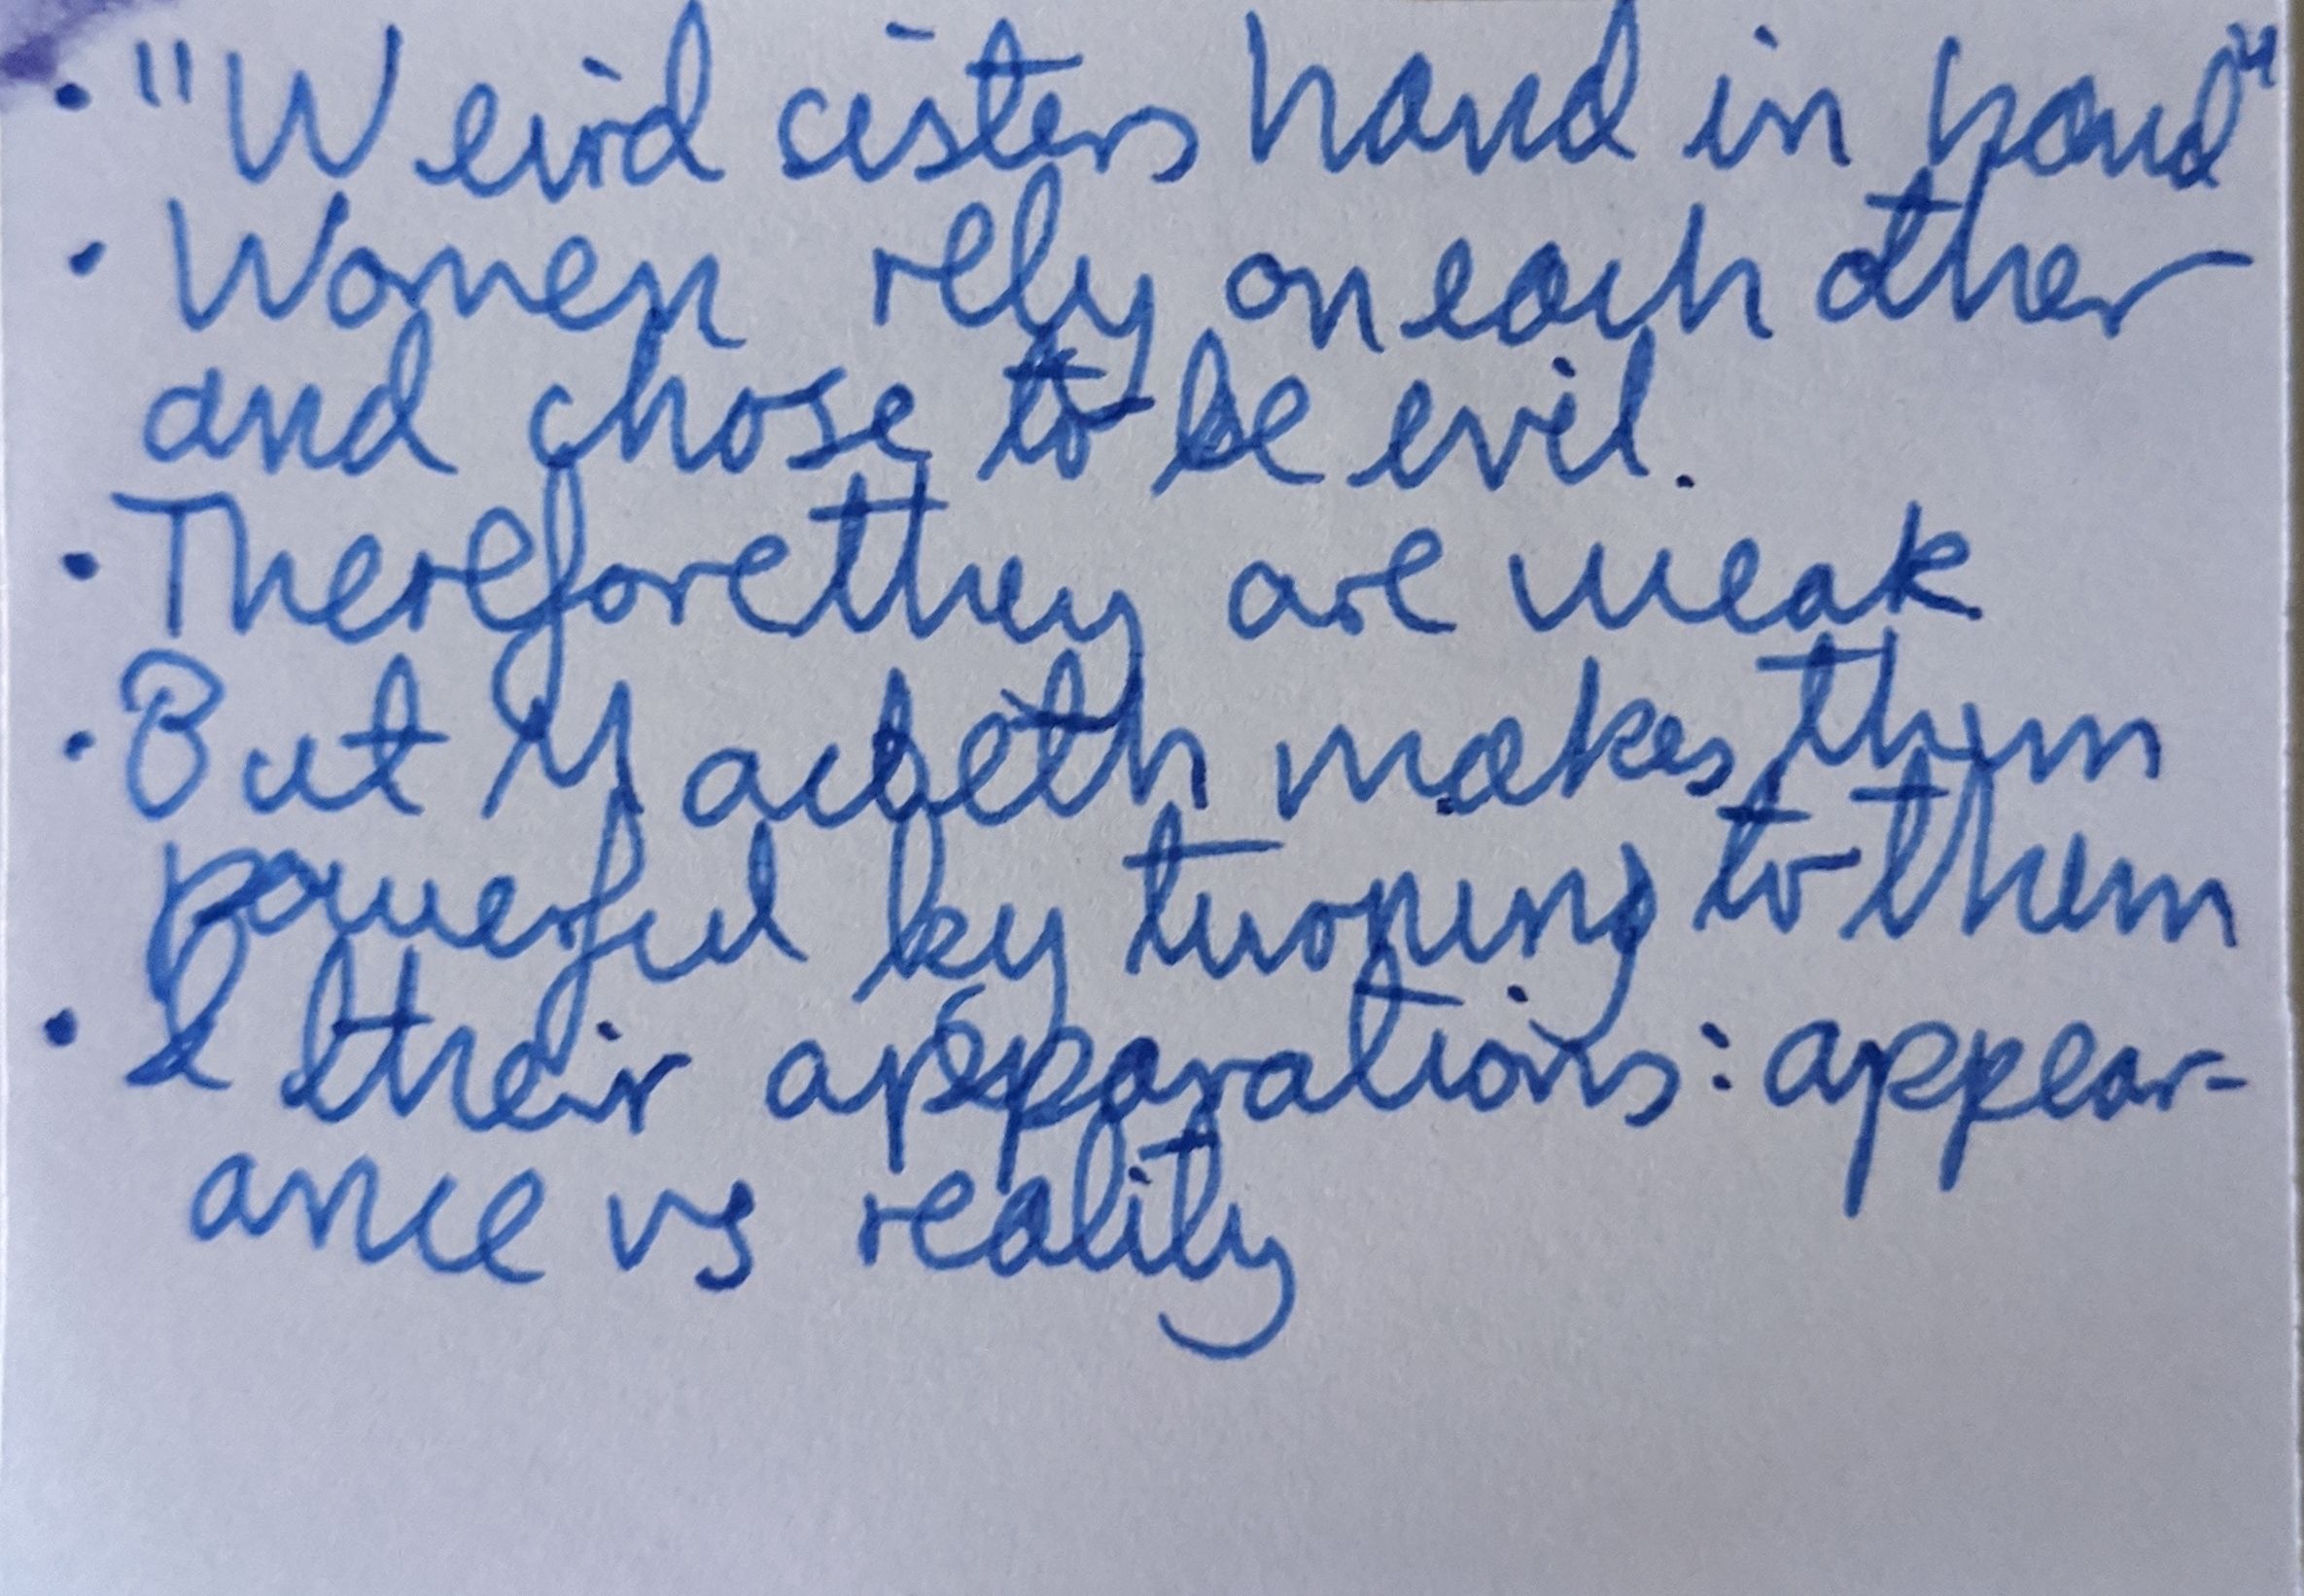 • "Weird sisters hand in hand"
• Women rely on each other
and chose to be evil.
• Therefore they are weak
• But Macbeth makes them
powerful by turning to them
• & their apparations: appear-
ance vs reality